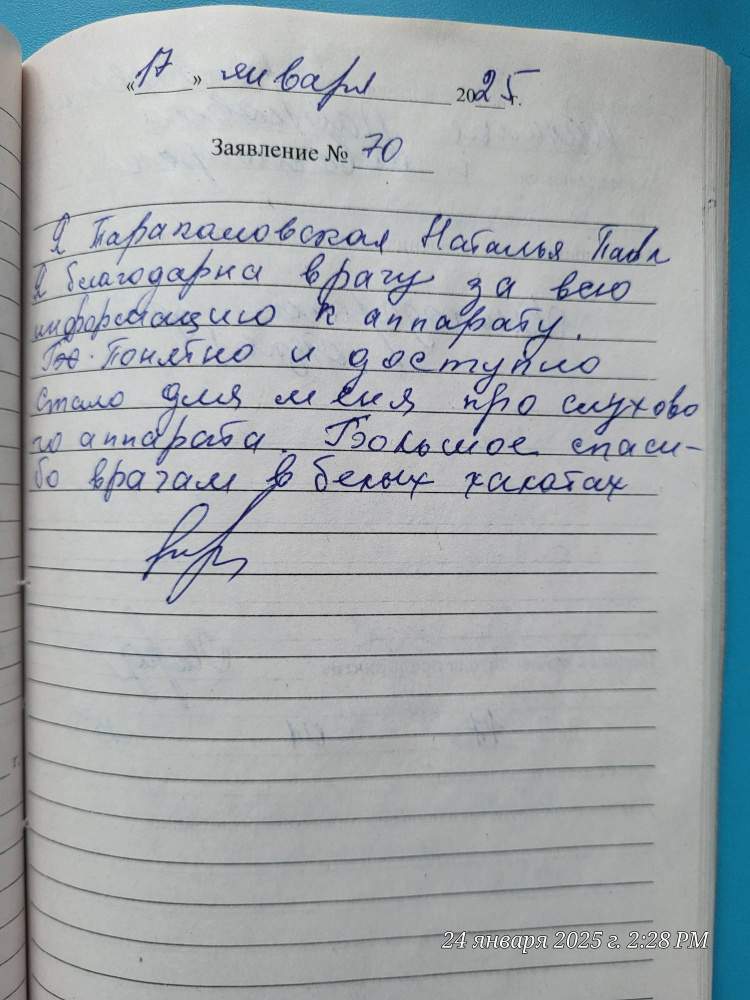 «17» января 2025 г.
Заявление № 70
Я Тарапаловская Наталья Павл
Я благодарна врачу за всю
информацию к аппарату.
Понятно и доступно
стало для меня про слухово
го аппарата. Большое спаси-
бо врачам в белых халатах
24 января 2025 г. 2:28 PM